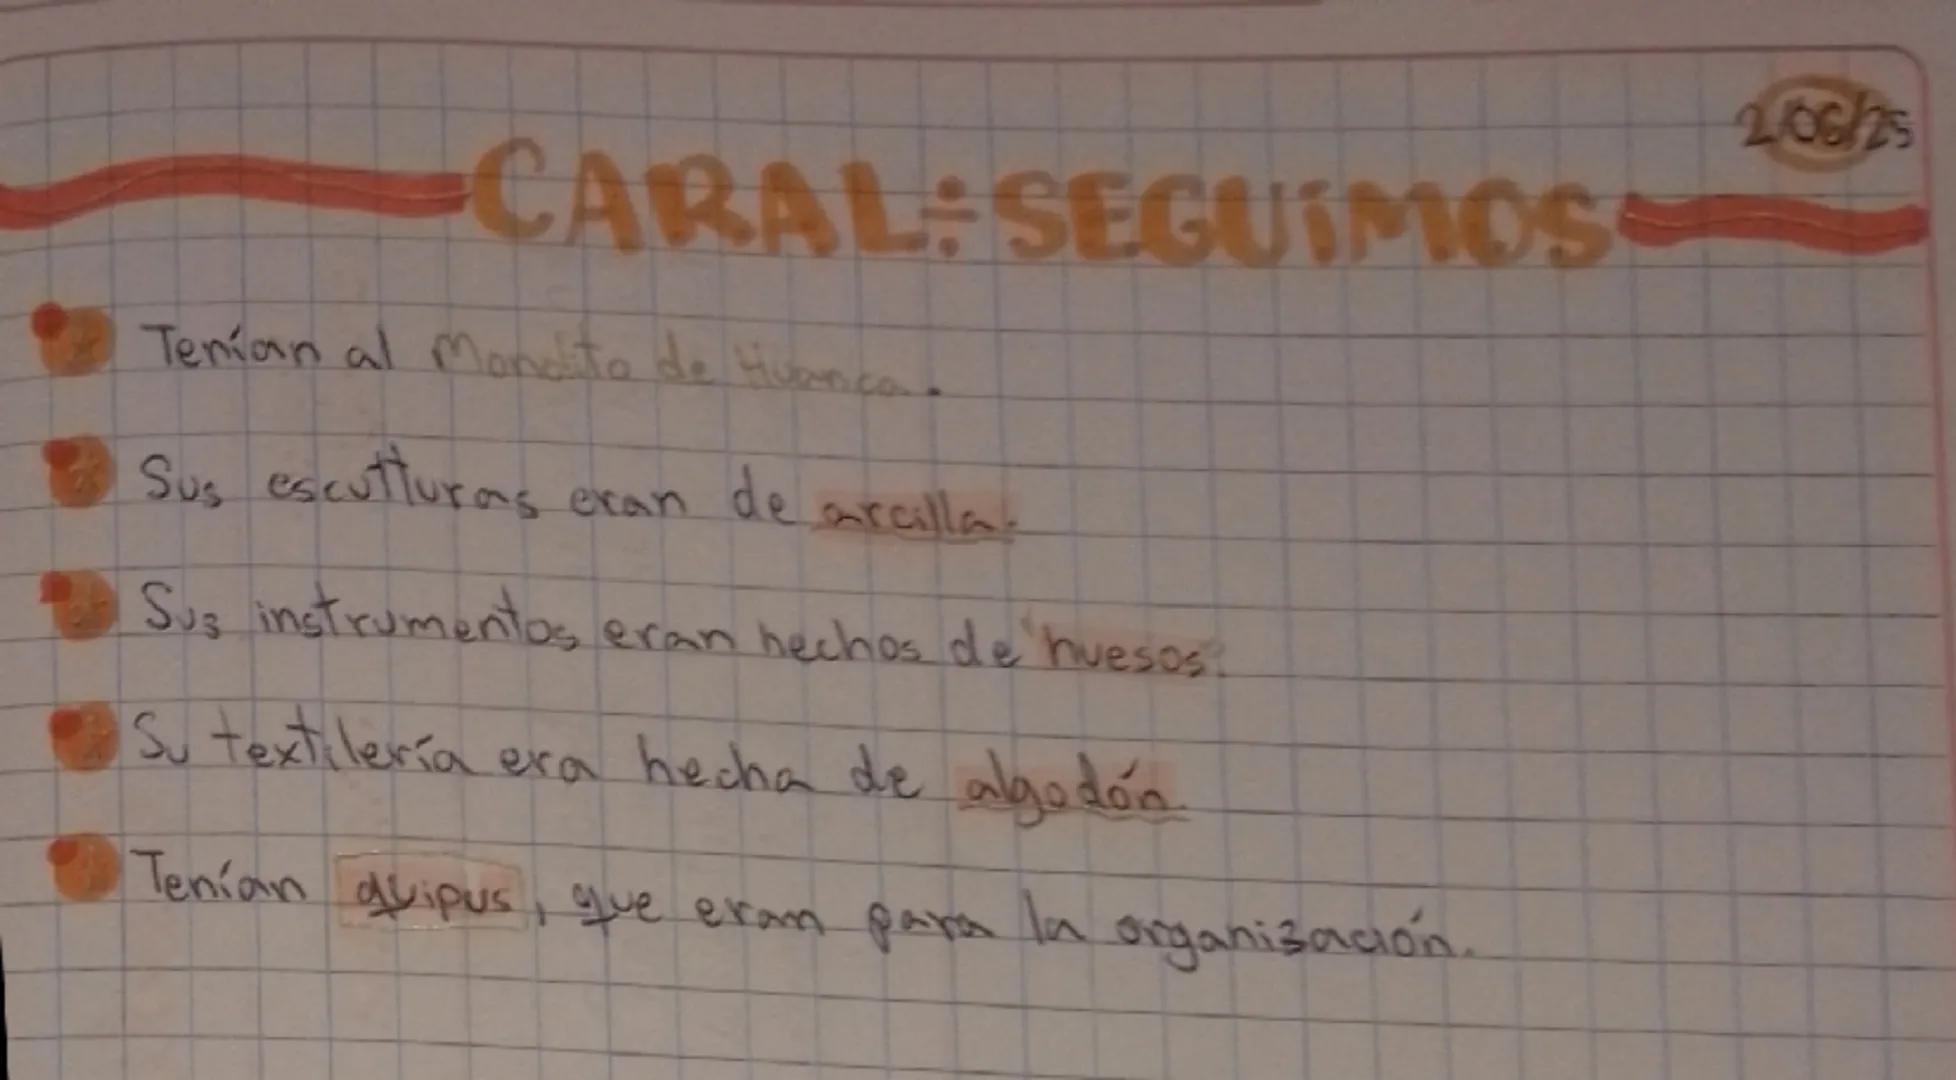 2/06/25
CARAL÷SEGUIMOS
Tenían al Mondito de Huanca.
Sus escutturas eran de arcilla.
Sus instrumentos eran hechos de huesos.
Su textilería era hecha de algodón.
Tenían quipus, que eran para la organización.